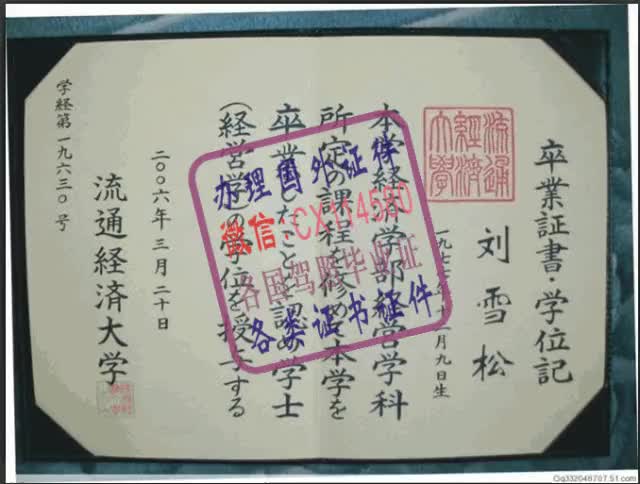 卒業証書・学位記
流通
經濟
大學
刘雪松
月九日生
本学経済学部経営学科
所定の課程を修め本学を
卒業したことを認め学士
(経営学)の学位を授与する
二〇〇六年三月二十日
流通経済大学
学経第一九六三〇号
办理国外证件
微信:CX114580
各国驾照毕业证
各类证书证件